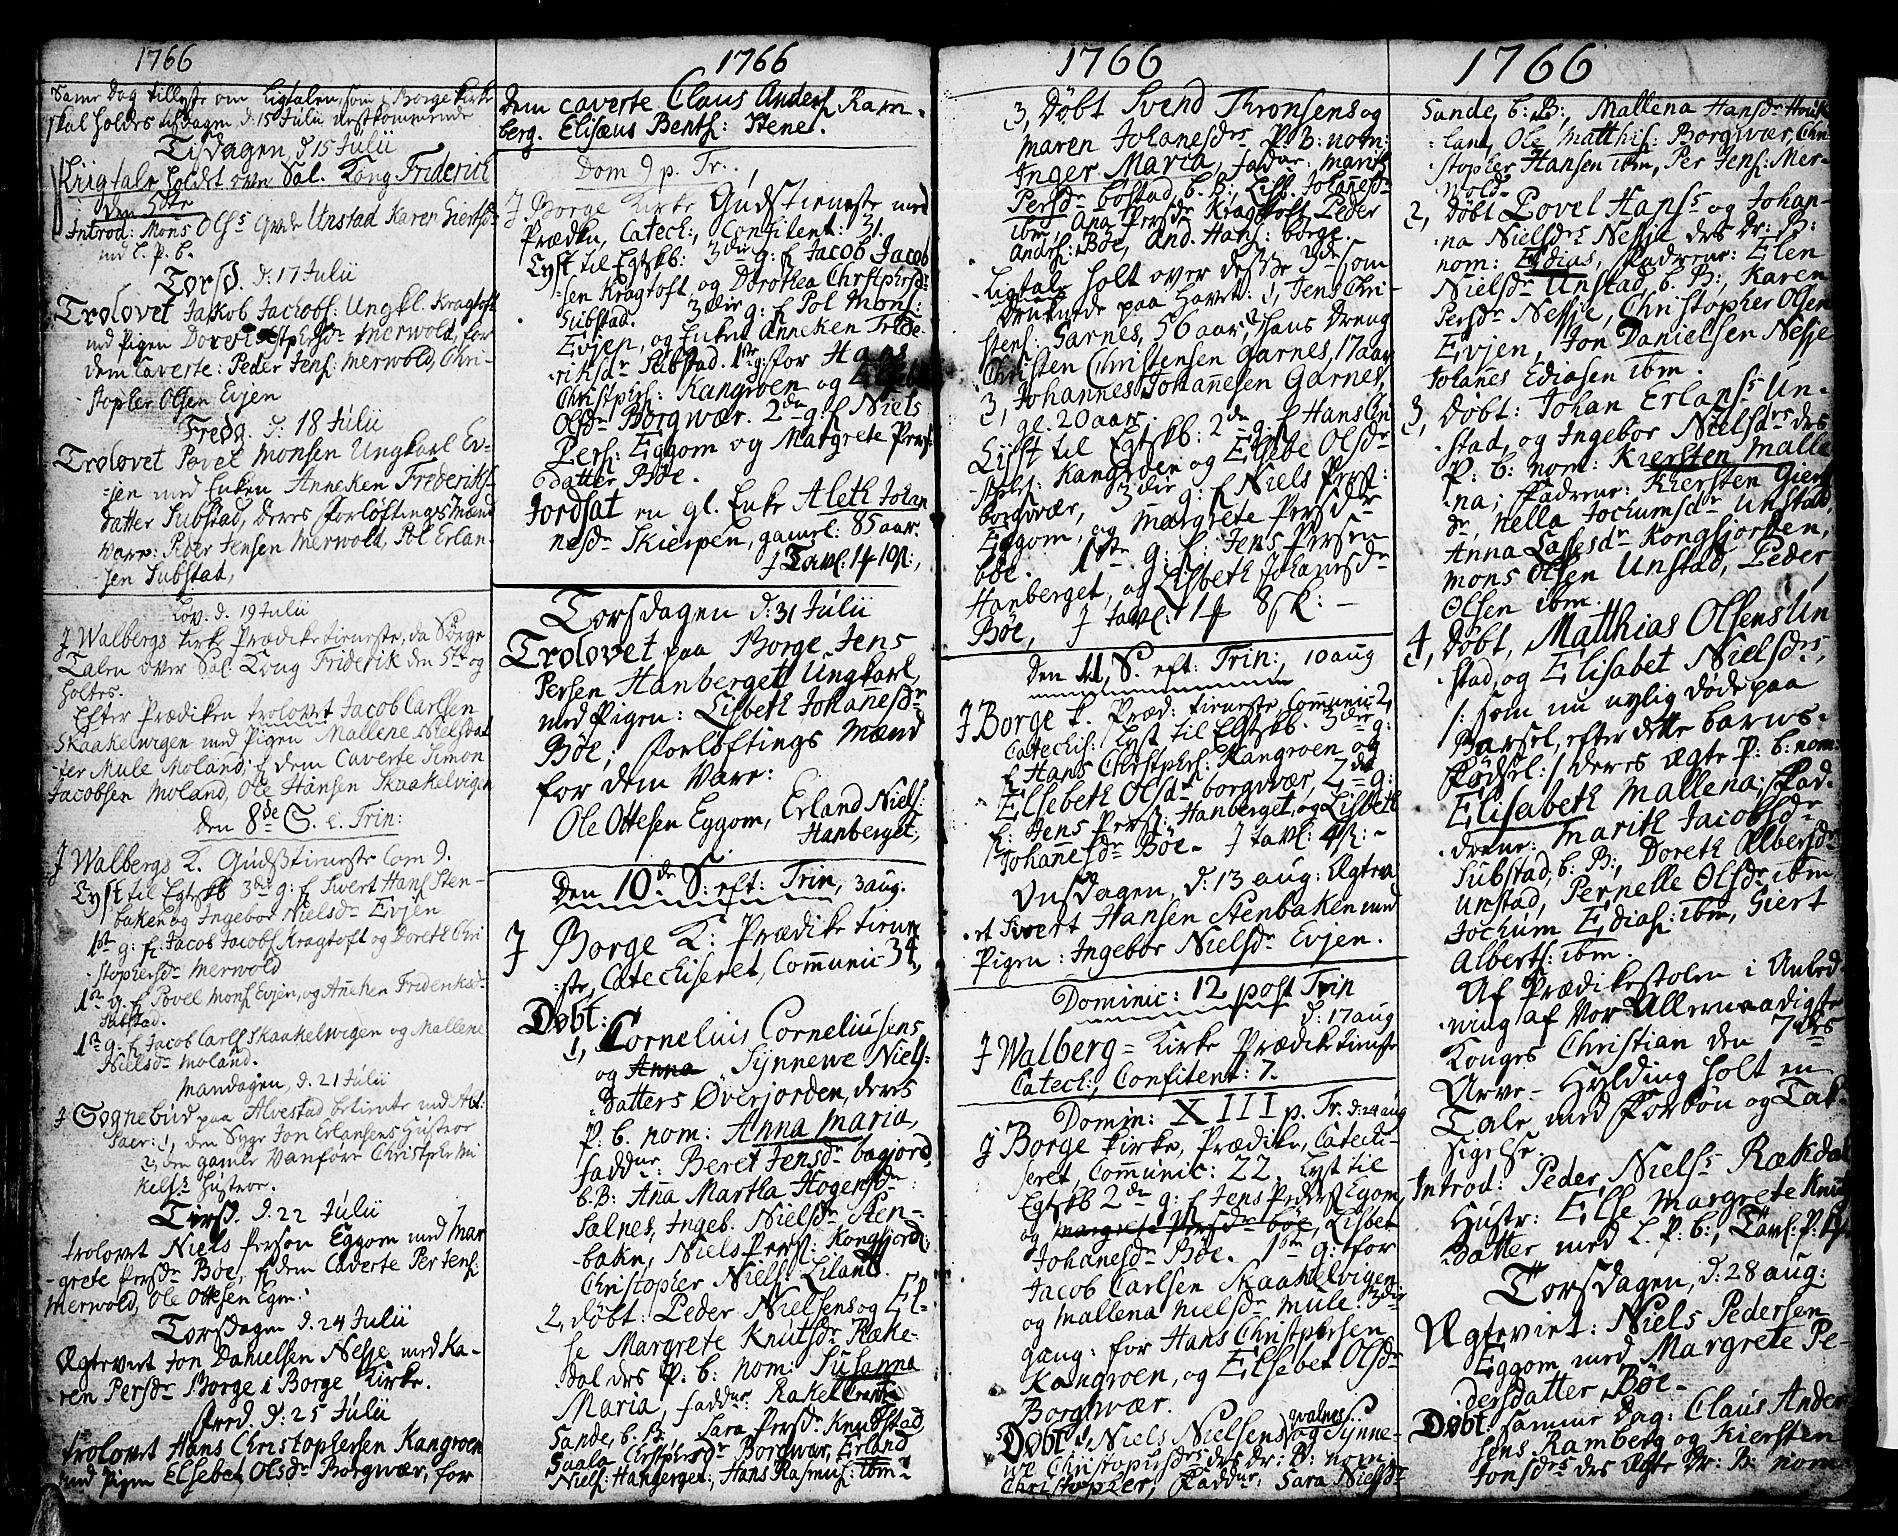 1766
Same Dag tillyste om Ligtalen, som i Borge Kirke
skal holdes tisdagen d: 15 Julii nestkommende
Tisdagen, d. 15 Julii
holdet over Sal. Kong Friderich
den 5te
Introd: Mons Ols: Unstad Karen Giertsdr
med l. p. b.
Torsd. d. 17 Julii
Trolovet Jakob Jachobs: Ungkl. Kragtoft
med Pigen Merwold, for
dem Caverte: Peder Jens: Merwold, Chri-
stopher Olsen Evjen
Fredg. d. 18 Julii
Trolovet Povel Monsen Ungkarl Ev-
jen med Enken Anneken Frederichs
datter Substad, deres Forløftings Mænd
vare: Peder Jensen Merwold, Pol Erlan-
sen Substad,
Løv. d. 19 Julii
J Walbergs Kirk Prædiketieneste, da Sørge
Talen over Sal. Kong Friderik den 5te og
holtes.
Efter Prædiken trolovet Jacob Carlsen
Skaakelwigen med Pigen Mallene Nielsdat
ter Mule Moland; f dem Caverte Simon
Jacobsen Moland, Ole Hansen Skaakelvigen
Den 8de S. e. Trin:
J Walbergs K. Gudstieneste Com 9.
Lyst til Egtskb 3die g: f Sivert Hans Sten-
baken og Ingebor Nielsdr Evjen
1ste g: f: Jacob Jacobs Kragtoft og Doreth Chri
stophersdr Merwold
1ste g. f Povel Mons Evjen, og Aneken Fridericksd-
Substad.
1ste g: f Jacob Carls Skaakelwigen og Mallene
Nielsdr Moland.
Mandagen, d. 21 Julii
J Sognebud paa Alvestad betiente med Alt:
Sacr: 1, den Syge Jon Erlansens Hustroe
2, den gamle Vanføre Christopher Mi
kels: Hustroe.
Tirsd. d. 22 Julii
trolovet Niels Persen Eggom med Mar
grete Persdr Bøe, f dem Caverte Per Jens:
Merwold, Ole Ottesen Egm.
Torsdagen d. 24 Julii
Ægteviet Jon Danielsen Nesje med Ka-
ren Persdr Borge i Borge Kirke.
Fred. d: 25 Julii
trolovet Hans Christophersen Kangroen
med Pigen Elsebet Olsdr Borgwær, for
1766
dem caverte Claus Anders Ram-
berg. Elisæus Bents: Stene.
Dom 9 p. Tr.
J Borge Kirke Gudstieneste med
Prædken, Catech:, Confitent: 31.
Lyst til Egtskb: 3die g: f Jacob Jacob
sen Kragtoft, og Dorothea Christphersdr
Substad. 3die g: f Pol Mons:
Evjen, og Enken Anneken Frede-
riksdr Substad. 1ste g: for Hans
Christphers: Kangroen og
Olsdr Borgwær. 2den g: f Niels
Pers: Eggom og Margrete Pers
datter Bøe.
Jordsat en gl. Enke Aleth Johan
nesdr Skierpen, gamel: 85 aar.
J Tavl: 14
Torsdagen d: 31 Julii
Trolovet paa Borge Jens
Persen Hanberget Ungkarl,
med Pigen: Lisbeth Johanesdr
Bøe; Forløftings Mænd
for dem Vare:
Ole Ottesen Eggom, Erland Niels:
Hanberget,
Den 10de S: eft: Trin, 3 aug.
J Borge K: Prædiketiene
ste, Catechiseret, Communic 34,
Døbt:
1, Cornelius Corneliusens
og Anna Synnewe Niels:
datters Øverjorden, deres
P: b. nom: Anna Maria,
faddur: Beret Jensdr bagjord,
b. B: Ana Martha Hogensdr
Salnes, Ingeb. Nielsdr Sten-
baken, Niels Pers: Kongsjord:
Christopher Niels: Liland.
2, døbt: Peder Nielsens og El-
se Margrete Knutsdr Ræke-
dal des P: b: nom: Susanna
Maria, faddur: Rakel
Sande, b. B., Sara Persdr Knudstad
Christphersdr Borgwær, Erland
Niels: Hangerget, Hans Rasmus: ibm:
1766
3, Døbt Svend Thronsens og
Maren Johanesdr P: B: nom:
Inger Maria, faddur: Marit
Persdr bøstad, b. B: Lisb. Johanesdr
ibm, Ana Persdr Kragtoft, Peder
Anders: Bøe, And. Hans: borge.
Ligtale holt over desse 3de som
druknede paa Havet: 1, Jens Chri-
stens: Garnes, 56 aar, hans Dreng
Christen Christensen Garnes, 17 aar
3, Johannes Johanesen Garnes,
gl. 20 aar.
Lyst til Egtskb: 2den g: f Hans Chri
stphs: Kangroen og Elsebe Olsdr
borgwær, 3die g: f Niels Pers:
Eggom, og Margrete Persdr
bøe. 1ste g: f: Jens Persen
Hanberget, og Lisbeth Johanesdr
Bøe, J tavl: 14 8 sk: -
Den 11, S. eft: Trin:, 10 aug
J Borge K. Præd: tieneste, Communic 2,
Catechis: Lyst til Egtskb 3die g:
f Hans Christphers: Kangroen og
Elsebeth Olsdr borgwær, 2de g:
f: Jens Pers: Hanberget, og Lisbeth
Johanesdr Bøe. J tavl: 4
Onsdagen, d: 13 aug: Ægtevi
et Sivert Hansen Stenbaken med
Pigen: Ingebor Nielsdr Evjen.
Dominic: 12 post Trin
d: 17 aug
J Walberg = Kirke Prædiketieneste
Catech:, Confitent: 7.
Domin: XIII p. Tr. d: 24 aug
J Borge Kirke, Prædiken, Catechi-
seret, Communic: 22. Lyst til
Egtskb 2den g: f Jens Peders Egom,
og Margrete Persdr bøe, Lisbet
Johanesdr Bøe. 1ste g: for
Jacob Carlsen Skaakelvigen
og Mallena Nielsdr Mule. 3die
gang: for Hans Christphersen
Kangroen, og Elsebet Olsdr
Borgwær.
Døbt 1, Niels Nielsens og Synne-
we Christophersdr des dr: B: nom
Christopher, Faddur: Sara Nielsdr
1766
Sande, b: B:, Mallena Hansdr Houk
land, Ole Matthis: Borgwær, Chri
stopher Hansen ibm, Per Jens: Mer-
wold.
2, døbt Povel Hans: og Johan-
na Nielsdr Nesje des Dr: B:
nom: Edias, Fadrene: Elen
Nielsdr Unstad, b. B:, Karen
Persdr Nesje, Christopher Olsen
Evjen, Jon Danielsen Nesje
Johanes Ediasen ibm.
3, Døbt: Johan Erlans: Un-
stad, og Ingebor Nielsdrs des
P. b: nom: Kiersten Malle
na; Fadrene: Kiersten Giert
dr, Nella Jochumsdr Unstad,
Anna Lassesdr Kongsjorden,
Mons Olsen Unstad, Peder
Olsen ibm.
4, Døbt, Matthias Olsens Un
stad, og Elisabet Nielsdrs,
/: som nu nylig døde paa
Barsel, efter dette barns
Fødsel:/ deres Ægte P: b: nom:
Elisabeth Mallena; Fad-
drene: Marith Jacobsdr
Substad, b: B:, Doreth Albersdr
Unstad, Pernelle Olsdr ibm
Jochum Edias: ibm, Giert
Alberts: ibm.
Af Prædikestolen i Anled
ning af Vor Allernaadigste
Konges Christian den 7des
Arve-Hylding holt en
Tale med Forbøn og Tak-
sigelse.
Introd: Peder Niels: Rækdal
Hustr: Else Margrete Knuds
datter med l. P: b:, Tavl: P:
Torsdagen, d: 28 aug:
Ægteviet: Niels Pedersen
Eggom, med Margrete Pe-
dersdatter Bøe.
Døbt samme dag: Claus Ander
sens Ramberg og Kiersten
Jonsdrs des Ægte Dr: B: nom: